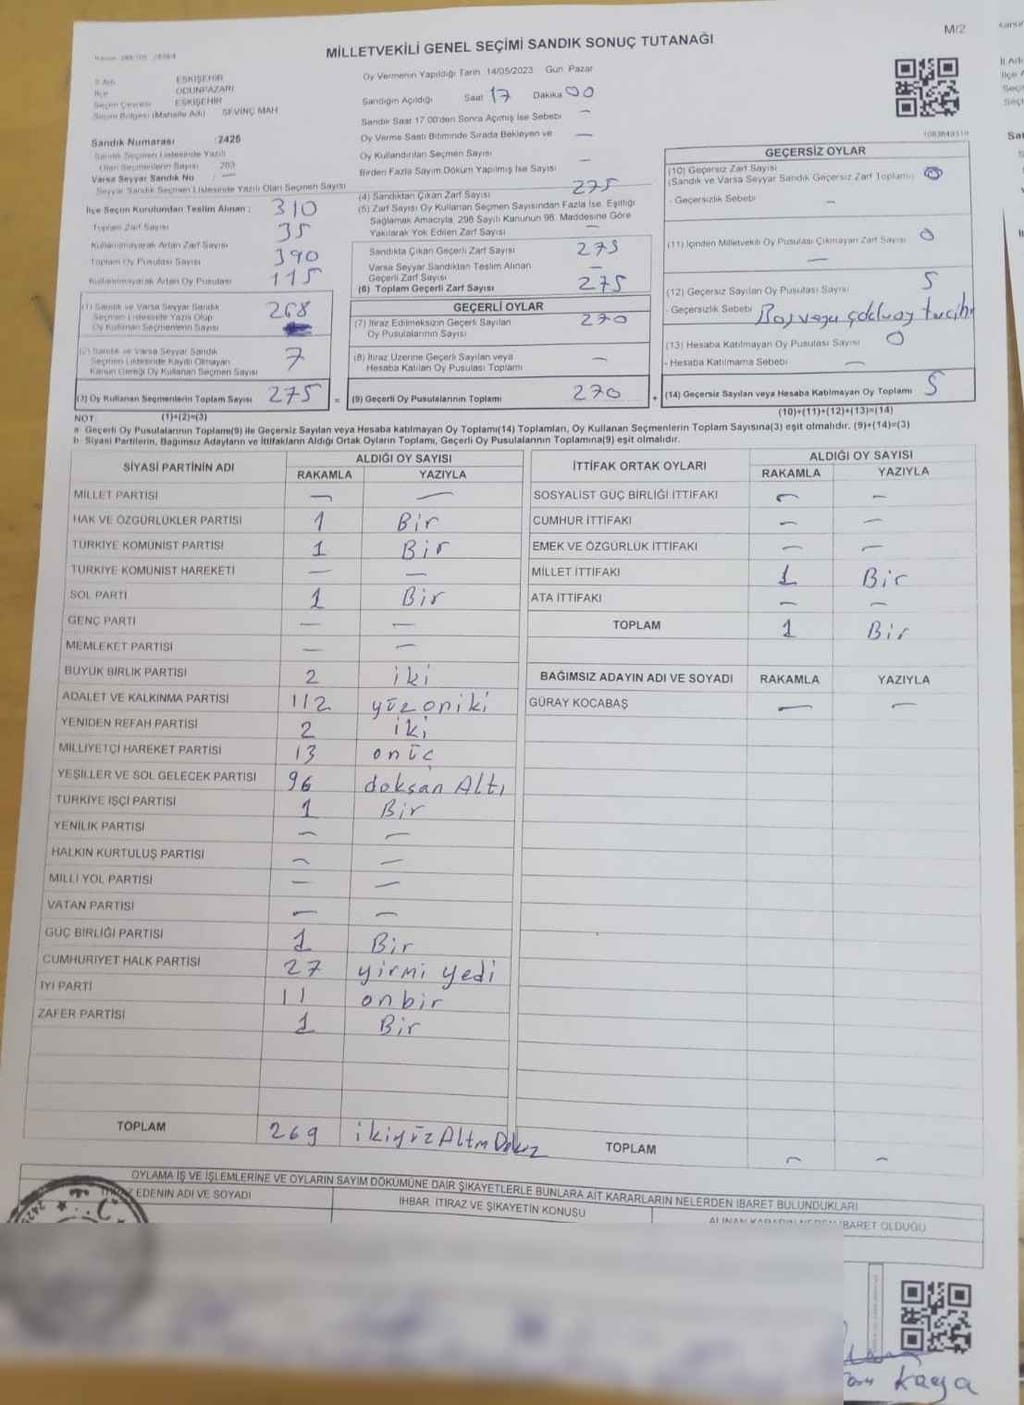 M/2
MİLLETVEKİLİ GENEL SEÇİMİ SANDIK SONUÇ TUTANAĞI
İl Adı ESKİŞEHİR
İlçe ODUNPAZARI
Seçim Çevresi ESKİŞEHİR
Seçim Bölgesi (Mahalle Adı) SEVİNÇ MAH
Sandık Numarası :2426
Sandık Seçmen Listesinde Yazılı
Olan Seçmenlerin Sayısı 283
Varsa Seyyar Sandık No
Seyyar Sandık Seçmen Listesinde Yazılı Olan Seçmen Sayısı
İlçe Seçim Kurulundan Teslim Alınan : 310
Toplam Zarf Sayısı
Kullanılmayarak Artan Zarf Sayısı 35
Toplam Oy Pusulası Sayısı 390
Kullanılmayarak Artan Oy Pusulası 115
(1) Sandık ve Varsa Seyyar Sandık
Seçmen Listesinde Yazılı Olup
Oy Kullanan Seçmenlerin Sayısı 268
(2) Sandık ve Varsa Seyyar Sandık
Seçmen Listesinde Kayıtlı Olmayan
Kanun Gereği Oy Kullanan Seçmen Sayısı 7
(3) Oy Kullanan Seçmenlerin Toplam Sayısı 275 =
Oy Vermenin Yapıldığı Tarih 14/05/2023 Gün Pazar
Sandığın Açıldığı Saat 17 Dakika 00
Sandık Saat 17.00'den Sonra Açılmış İse Sebebi —
Oy Verme Saati Bitiminde Sırada Bekleyen ve
Oy Kullandırılan Seçmen Sayısı —
Birden Fazla Sayım Döküm Yapılmış İse Sayısı —
(4) Sandıktan Çıkan Zarf Sayısı 275
(5) Zarf Sayısı Oy Kullanan Seçmen Sayısından Fazla İse, Eşitliği
Sağlamak Amacıyla, 298 Sayılı Kanunun 98. Maddesine Göre
Yakılarak Yok Edilen Zarf Sayısı —
Sandıkta Çıkan Geçerli Zarf Sayısı 275
Varsa Seyyar Sandıktan Teslim Alınan
Geçerli Zarf Sayısı —
(6) Toplam Geçerli Zarf Sayısı 275
GEÇERLİ OYLAR
(7) İtiraz Edilmeksizin Geçerli Sayılan
Oy Pusulalarının Sayısı 270
(8) İtiraz Üzerine Geçerli Sayılan veya
Hesaba Katılan Oy Pusulası Toplamı —
(9) Geçerli Oy Pusulalarının Toplamı 270 +
GEÇERSİZ OYLAR
(10) Geçersiz Zarf Sayısı
(Sandık ve Varsa Seyyar Sandık Geçersiz Zarf Toplamı) 0
- Geçersizlik Sebebi —
(11) İçinden Milletvekili Oy Pusulası Çıkmayan Zarf Sayısı 0
—
(12) Geçersiz Sayılan Oy Pusulası Sayısı 5
- Geçersizlik Sebebi Boş veya çoklu oy tercih
(13) Hesaba Katılmayan Oy Pusulası Sayısı 0
- Hesaba Katılmama Sebebi —
(14) Geçersiz Sayılan veya Hesaba Katılmayan Oy Toplamı 5
NOT: (1)+(2)=(3) (10)+(11)+(12)+(13)=(14)
a- Geçerli Oy Pusulalarının Toplamı(9) ile Geçersiz Sayılan veya Hesaba katılmayan Oy Toplamı(14) Toplamları, Oy Kullanan Seçmenlerin Toplam Sayısına(3) eşit olmalıdır. (9)+(14)=(3)
b- Siyasi Partilerin, Bağımsız Adayların ve İttifakların Aldığı Ortak Oyların Toplamı, Geçerli Oy Pusulalarının Toplamına(9) eşit olmalıdır.
SİYASİ PARTİNİN ADI ALDIĞI OY SAYISI
RAKAMLA YAZIYLA
MİLLET PARTİSİ — —
HAK VE ÖZGÜRLÜKLER PARTİSİ 1 Bir
TÜRKİYE KOMÜNİST PARTİSİ 1 Bir
TÜRKİYE KOMÜNİST HAREKETİ — —
SOL PARTİ 1 Bir
GENÇ PARTİ — —
MEMLEKET PARTİSİ — —
BÜYÜK BİRLİK PARTİSİ 2 iki
ADALET VE KALKINMA PARTİSİ 112 yüzoniki
YENİDEN REFAH PARTİSİ 2 iki
MİLLİYETÇİ HAREKET PARTİSİ 13 onüç
YEŞİLLER VE SOL GELECEK PARTİSİ 96 doksan Altı
TÜRKİYE İŞÇİ PARTİSİ 1 Bir
YENİLİK PARTİSİ — —
HALKIN KURTULUŞ PARTİSİ — —
MİLLİ YOL PARTİSİ — —
VATAN PARTİSİ — —
GÜÇ BİRLİĞİ PARTİSİ 1 Bir
CUMHURİYET HALK PARTİSİ 27 yirmi yedi
İYİ PARTİ 11 onbir
ZAFER PARTİSİ 1 Bir
TOPLAM 269 ikiyüzAltmDokuz
İTTİFAK ORTAK OYLARI ALDIĞI OY SAYISI
RAKAMLA YAZIYLA
SOSYALİST GÜÇ BİRLİĞİ İTTİFAKI — —
CUMHUR İTTİFAKI — —
EMEK VE ÖZGÜRLÜK İTTİFAKI — —
MİLLET İTTİFAKI 1 Bir
ATA İTTİFAKI — —
TOPLAM 1 Bir
BAĞIMSIZ ADAYIN ADI VE SOYADI RAKAMLA YAZIYLA
GÜRAY KOCABAŞ — —
TOPLAM — —
OYLAMA İŞ VE İŞLEMLERİNE VE OYLARIN SAYIM DÖKÜMÜNE DAİR ŞİKAYETLERLE BUNLARA AİT KARARLARIN NELERDEN İBARET BULUNDUKLARI
EDENİN ADI VE SOYADI
İHBAR, İTİRAZ VE ŞİKAYETİN KONUSU
İBARET OLDUĞU
Kaya